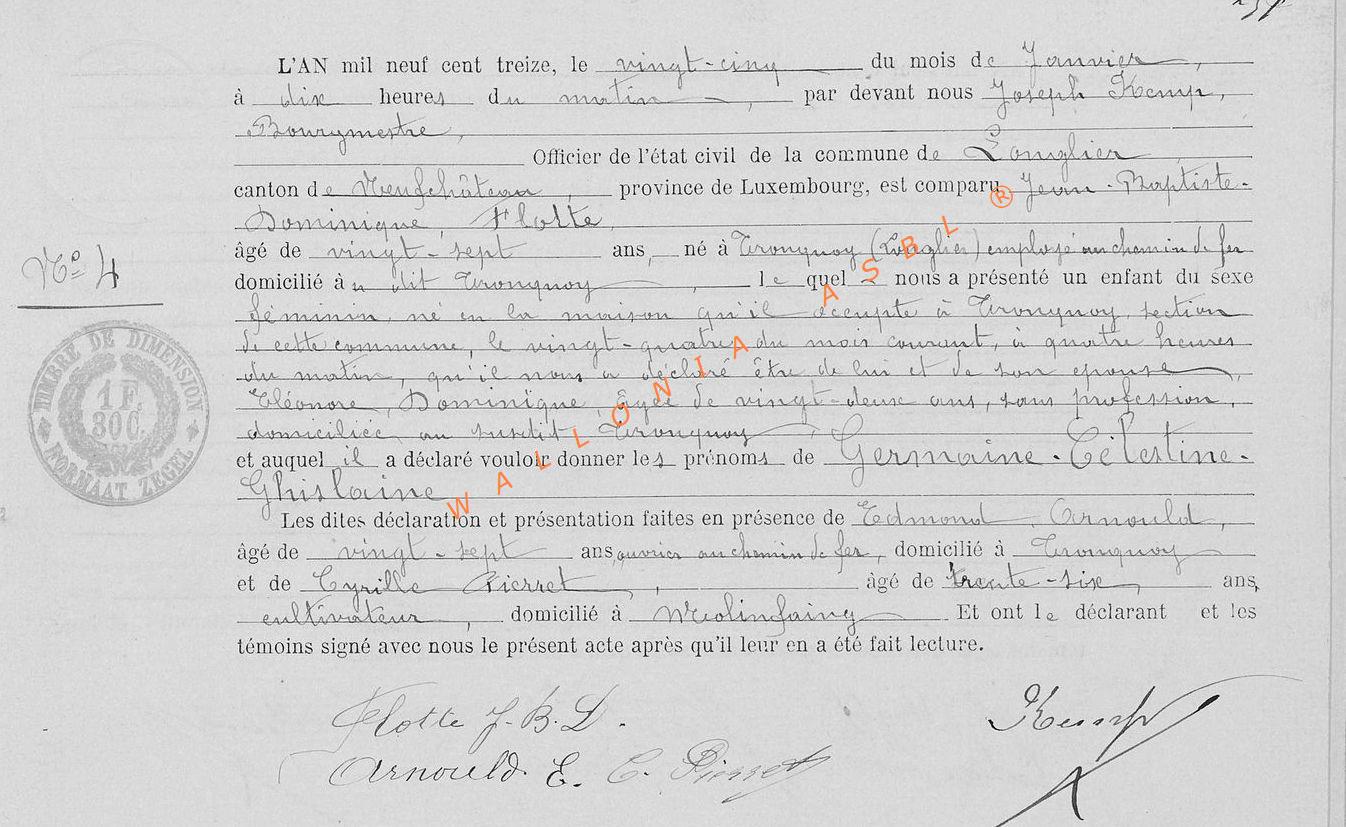 L'AN mil neuf cent treize, le vingt-cinq du mois de Janvier,
à dix heures du matin, par devant nous Joseph Kemp,
Bourgmestre,
Officier de l'état civil de la commune de Longlier
canton de Neufchâteau, province de Luxembourg, est comparu Jean-Baptiste-
Dominique, Flotte,
âgé de vingt-sept ans, né à Tronquoy (Longlier) employé au chemin de fer
domicilié à u dit Tronquoy, le quel nous a présenté un enfant du sexe
N° 4
féminin, né en la maison qu'il occupe à Tronquoy, section
de cette commune, le vingt-quatre du mois courant, à quatre heures
du matin, qu'il nous a déclaré être de lui et de son epouse,
Eléonore, Dominique, âgée de vingt-deux ans, sans profession,
domiciliée au susdit Tronquoy,
et auquel il a déclaré vouloir donner les prénoms de Germaine-Célestine-
Ghislaine
Les dites déclaration et présentation faites en présence de Edmond, Arnould,
âgé de vingt-sept ans, ouvrier au chemin de fer, domicilié à Tronquoy
et de Cyrille Pierret, âgé de trente-six, ans,
cultivateur, domicilié à Molinfaing Et ont le déclarant et les
témoins signé avec nous le présent acte après qu'il leur en a été fait lecture.
Flotte J.B.D.
Kemp
Arnould. E. C. Pierret
TIMBRE DE DIMENSION
1 F.
30 C.
FORMAAT ZEGEL
WALLONIA ASBL ®